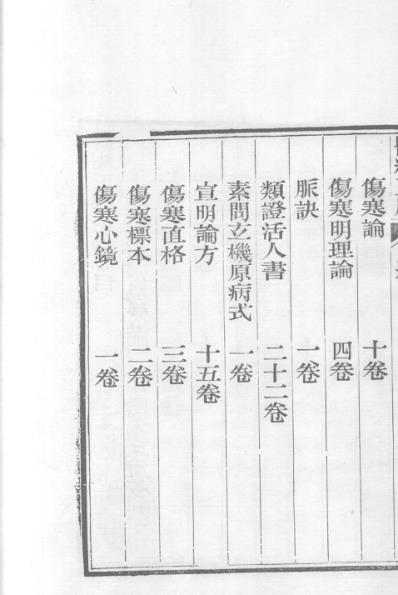 傷寒論 十卷
傷寒明理論 四卷
脈訣 一卷
類證活人書 二十二卷
素問玄機原病式 一卷
宣明論方 十五卷
傷寒直格 三卷
傷寒標本 二卷
傷寒心鏡 一卷